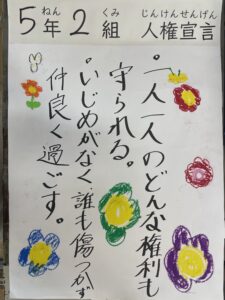 5年2組 人権宣言
ねん くみ じんけんせんげん
・一人一人のどんな権利も
守られる。
・いじめがなく、誰も傷つかず
仲良く過ごす。